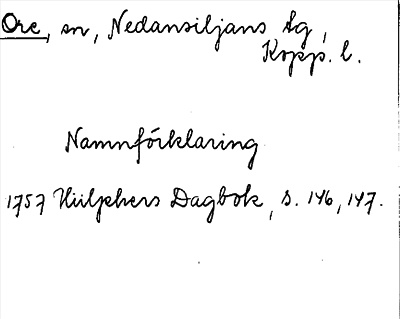 Ore, sn, Nedansiljans tg,
Kopp. l.
Namnförklaring
1757 Hülphers Dagbok, s. 146, 147.